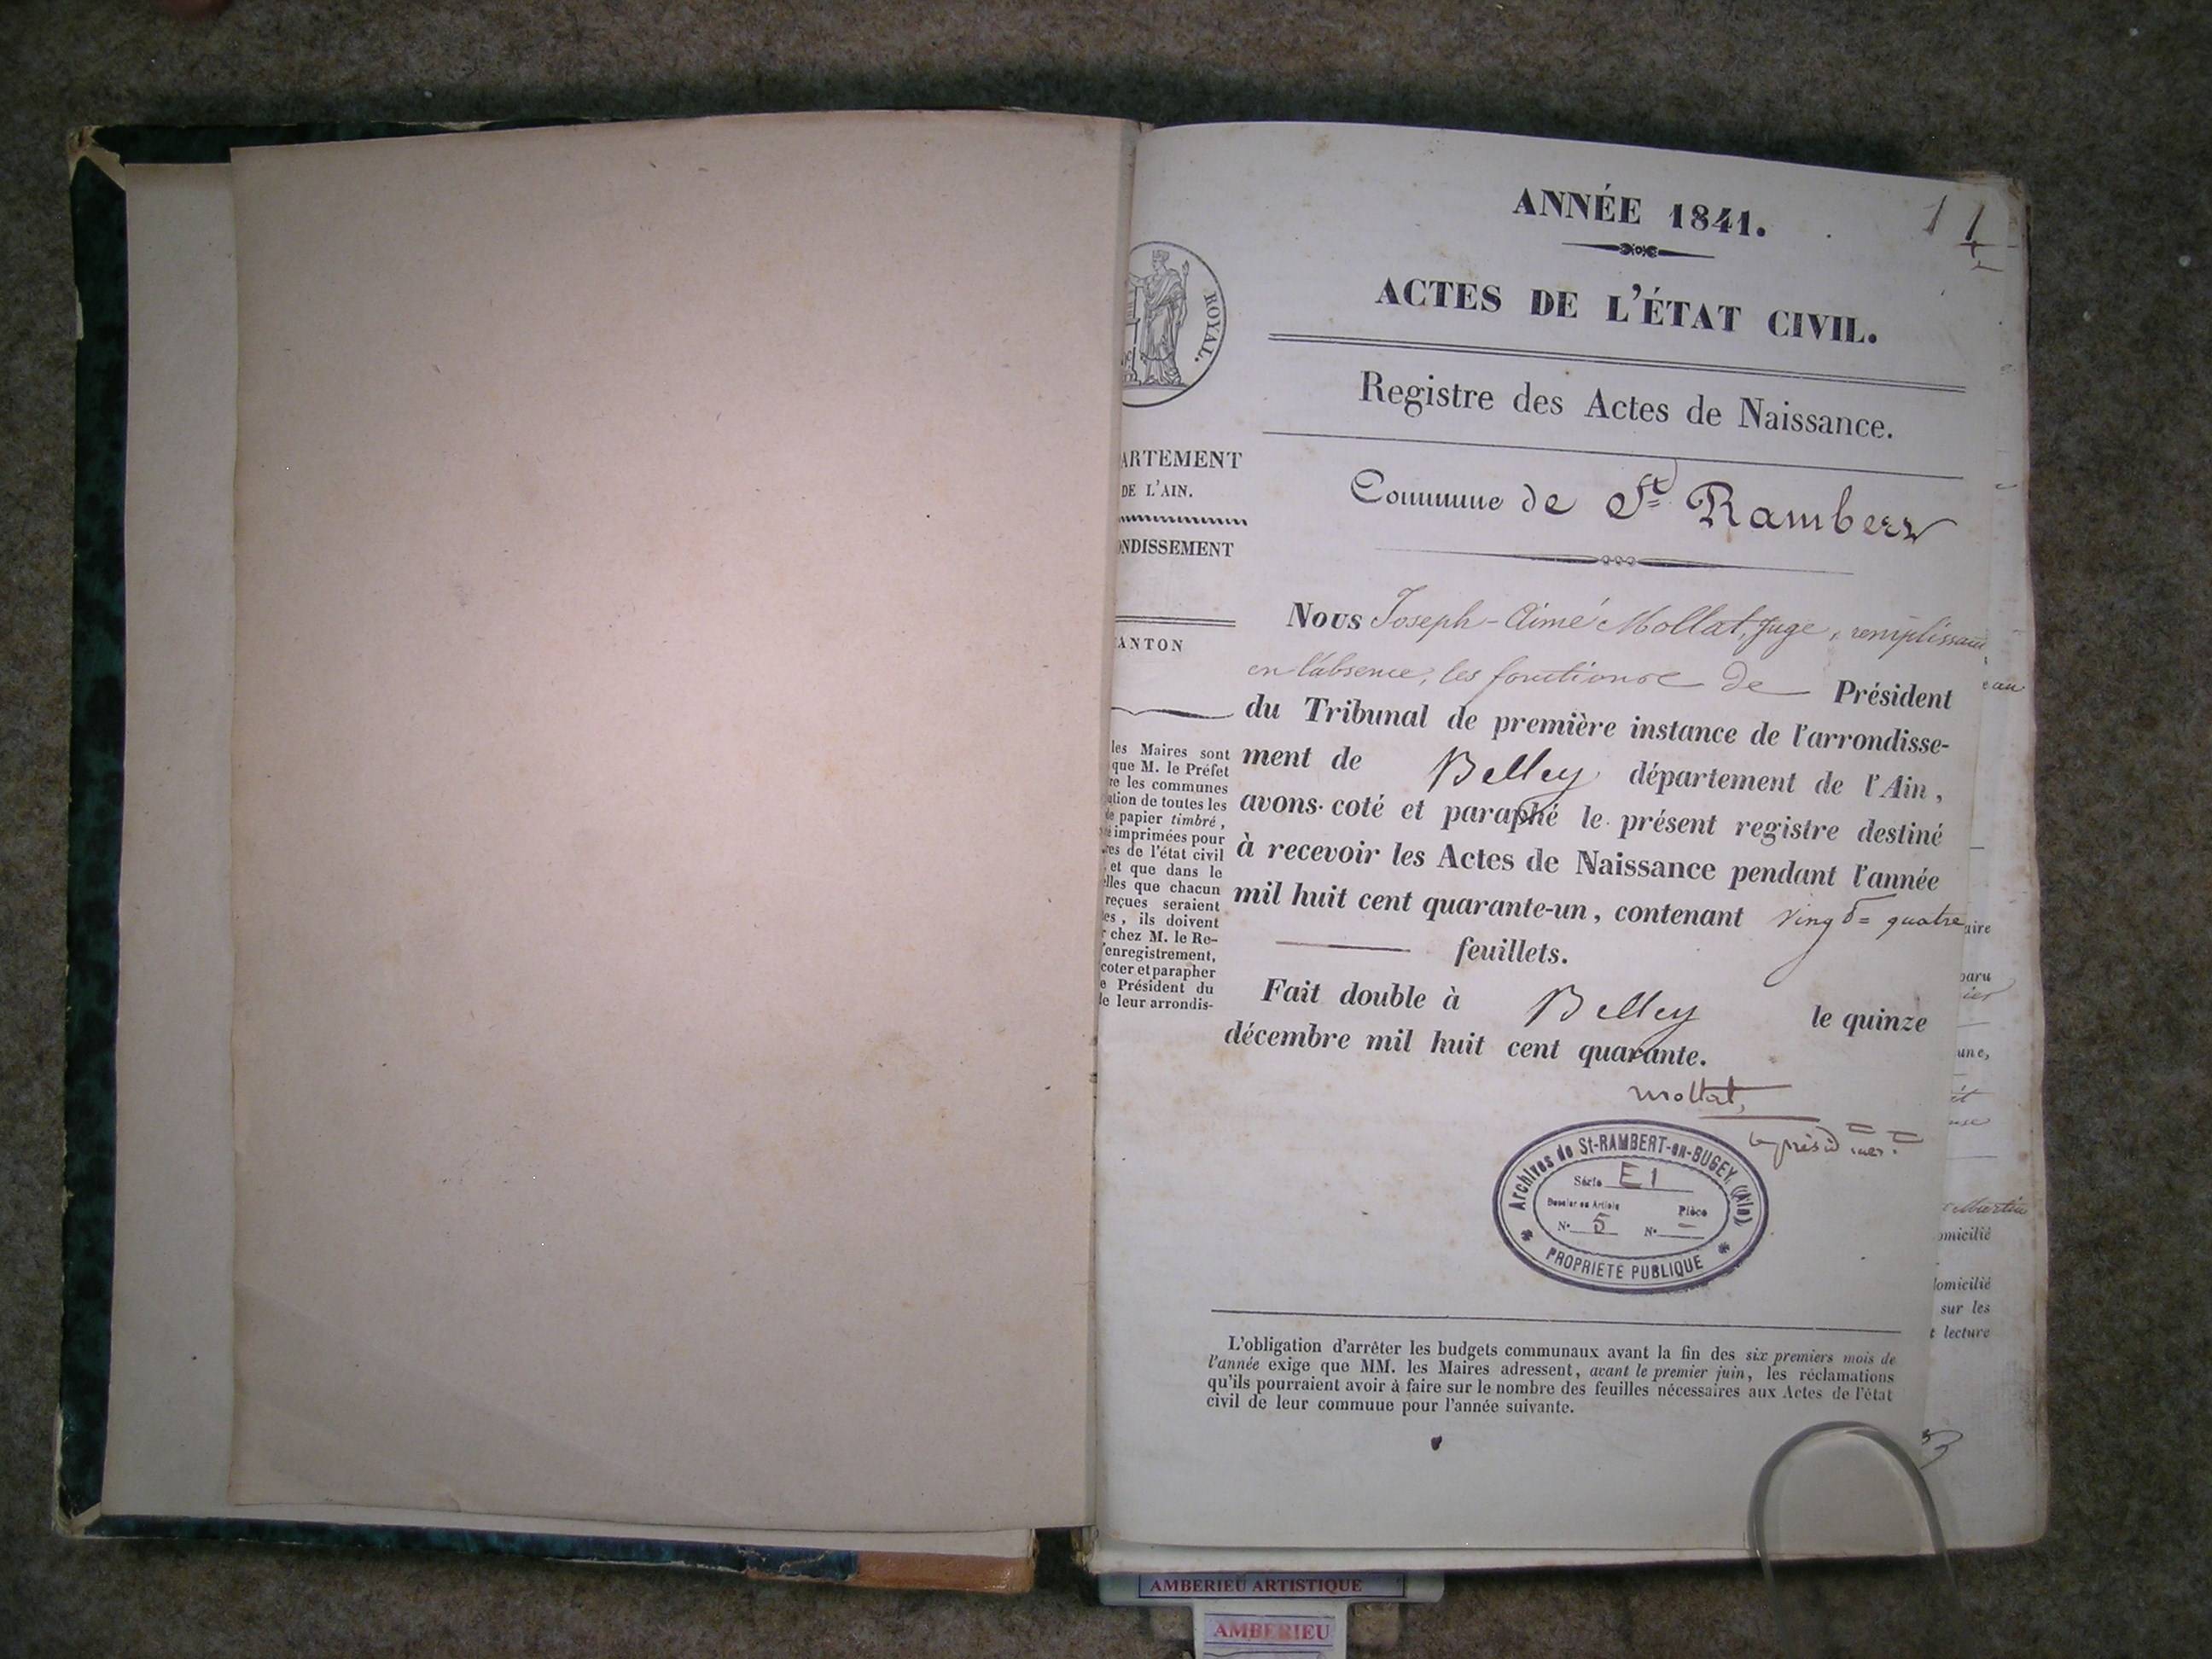 ANNÉE 1841.
1
ACTES DE L'ÉTAT CIVIL.
Registre des Actes de Naissance.
Commune de St Rambert
ROYAL.
ARTEMENT
DE L'AIN.
ONDISSEMENT
CANTON
les Maires sont
que M. le Préfet
re les communes
ation de toutes les
de papier timbré,
imprimées pour
res de l'état civil
et que dans le
elles que chacun
reçues seraient
es, ils doivent
r chez M. le Re-
l'enregistrement,
coter et parapher
e Président du
de leur arrondis-
Nous Joseph-Aimé Mollat, Juge, remplissant
en l'absence, les fonctions de Président
du Tribunal de première instance de l'arrondisse-
ment de Belley département de l'Ain,
avons coté et paraphé le présent registre destiné
à recevoir les Actes de Naissance pendant l'année
mil huit cent quarante-un, contenant vingt=quatre
feuillets.
Fait double à Belley le quinze
décembre mil huit cent quarante.
Mollat,
Archives de St-RAMBERT-en-BUGEY, (Ain)
Série E1
Dossier ou Article Pièce
N° 5 N° —
PROPRIETE PUBLIQUE
L'obligation d'arrêter les budgets communaux avant la fin des six premiers mois de
l'année exige que MM. les Maires adressent, avant le premier juin, les réclamations
qu'ils pourraient avoir à faire sur le nombre des feuilles nécessaires aux Actes de l'état
civil de leur commuue pour l'année suivante.
aire
paru
une,
Martin
omicilié
domicilié
sur les
t lecture
AMBERIEU ARTISTIQUE
AMBERIEU